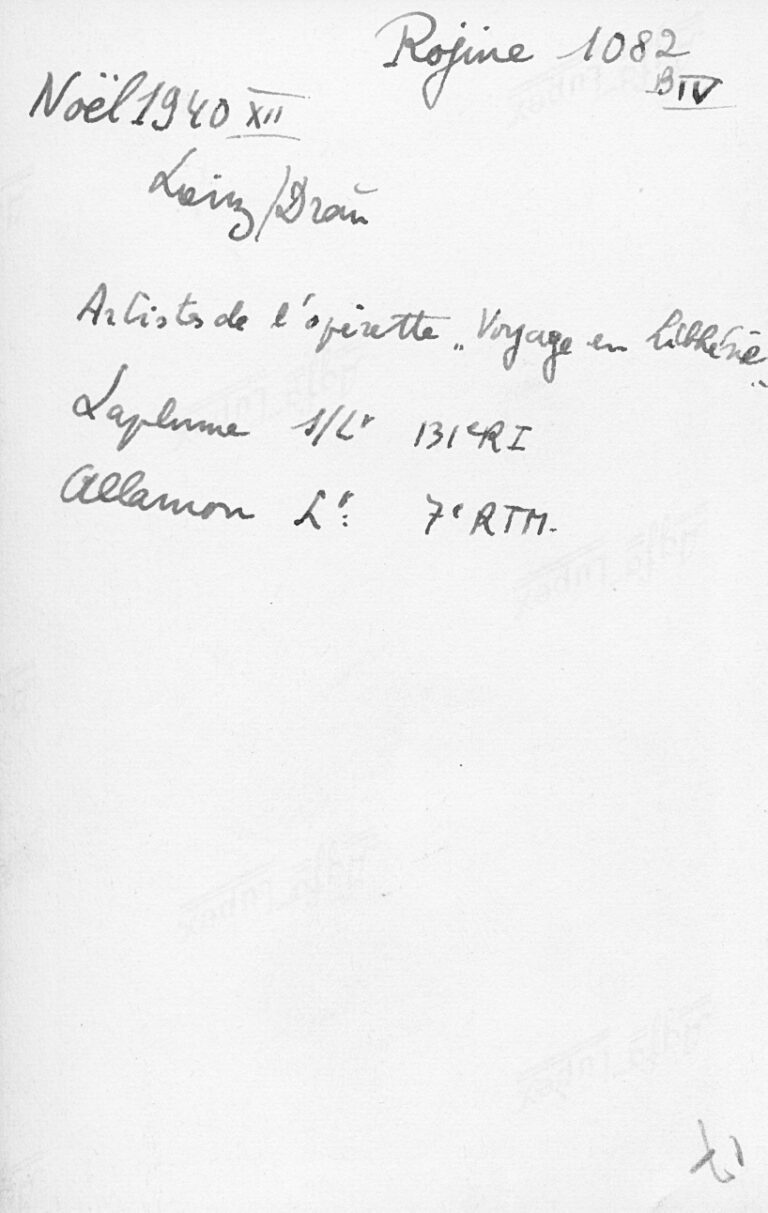 Rojine 1082
BIV
Noël 1940 XII
Leinz/Drau
Artistes de l'opérette „Voyage en
Laplume S/Lt 131e RI
Allamon Lt: 7e RTM.